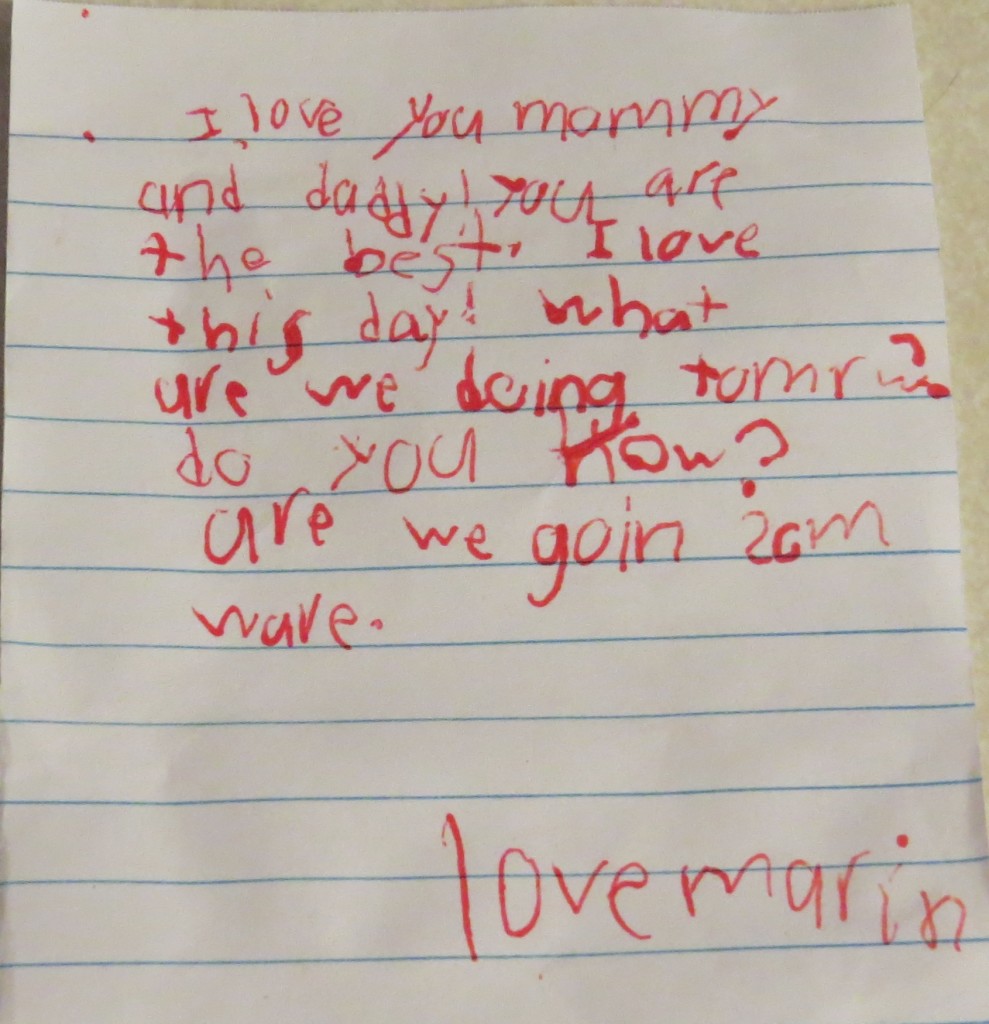 I love you mommy
and daddy! you are
the best. I love
this day! what
are we doing
do you know?
are we goin
ware.
love marin